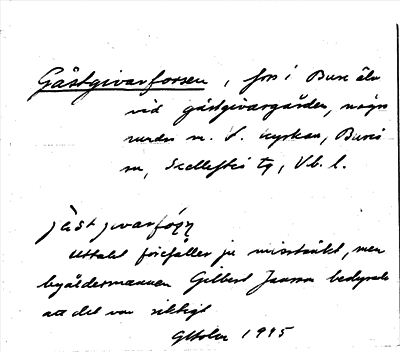 Gästgivarforsen, fors i Bure älv
vid gästgivargården, några
hundra m. S. kyrkan, Bureå
sn, Skellefteå tg, Vb. l.
jäst jivarfóṣṇ
Uttalet förefaller ju misstänkt, men
byåldermannen Gilbert Jansson bedyrade
att det var riktigt
1995